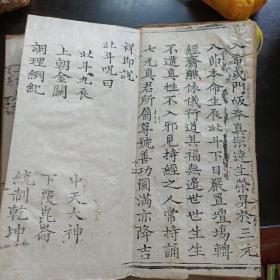 入希武門皈奉真崇違生榮昇於三元
八節本命生辰北斗下日嚴置壇塲轉
經齋醮依儀行道其福無邉世世生生
不違真性不入邪見持經之人常持誦
七元真君所屬尊號善功圓滿亦降吉
祥即說
北斗呪曰
北斗九辰
中天大神
上朝金闕
下覆崑崙
調理綱紀
統制乾坤